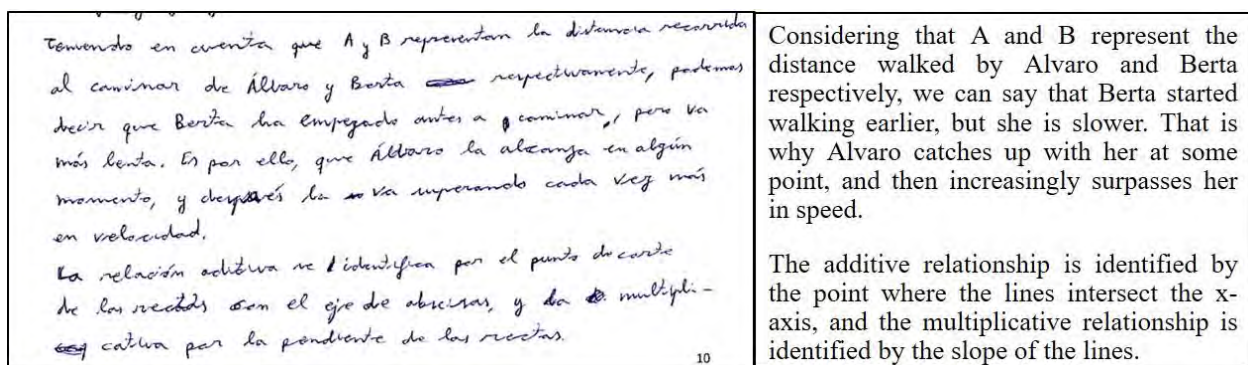 Teniendo en cuenta que A y B representan la distancia recorrida
al caminar de Álvaro y Berta respectivamente, podemos
decir que Berta ha empezado antes a caminar, pero va
más lenta. Es por ello, que Álvaro la alcanza en algún
momento, y después la va superando cada vez más
en velocidad.
La relación aditiva se identifica por el punto de corte
de las rectas con el eje de abscisas, y la multipli-
cativa por la pendiente de las rectas.
10
Considering that A and B represent the
distance walked by Alvaro and Berta
respectively, we can say that Berta started
walking earlier, but she is slower. That is
why Alvaro catches up with her at some
point, and then increasingly surpasses her
in speed.
The additive relationship is identified by
the point where the lines intersect the x-
axis, and the multiplicative relationship is
identified by the slope of the lines.